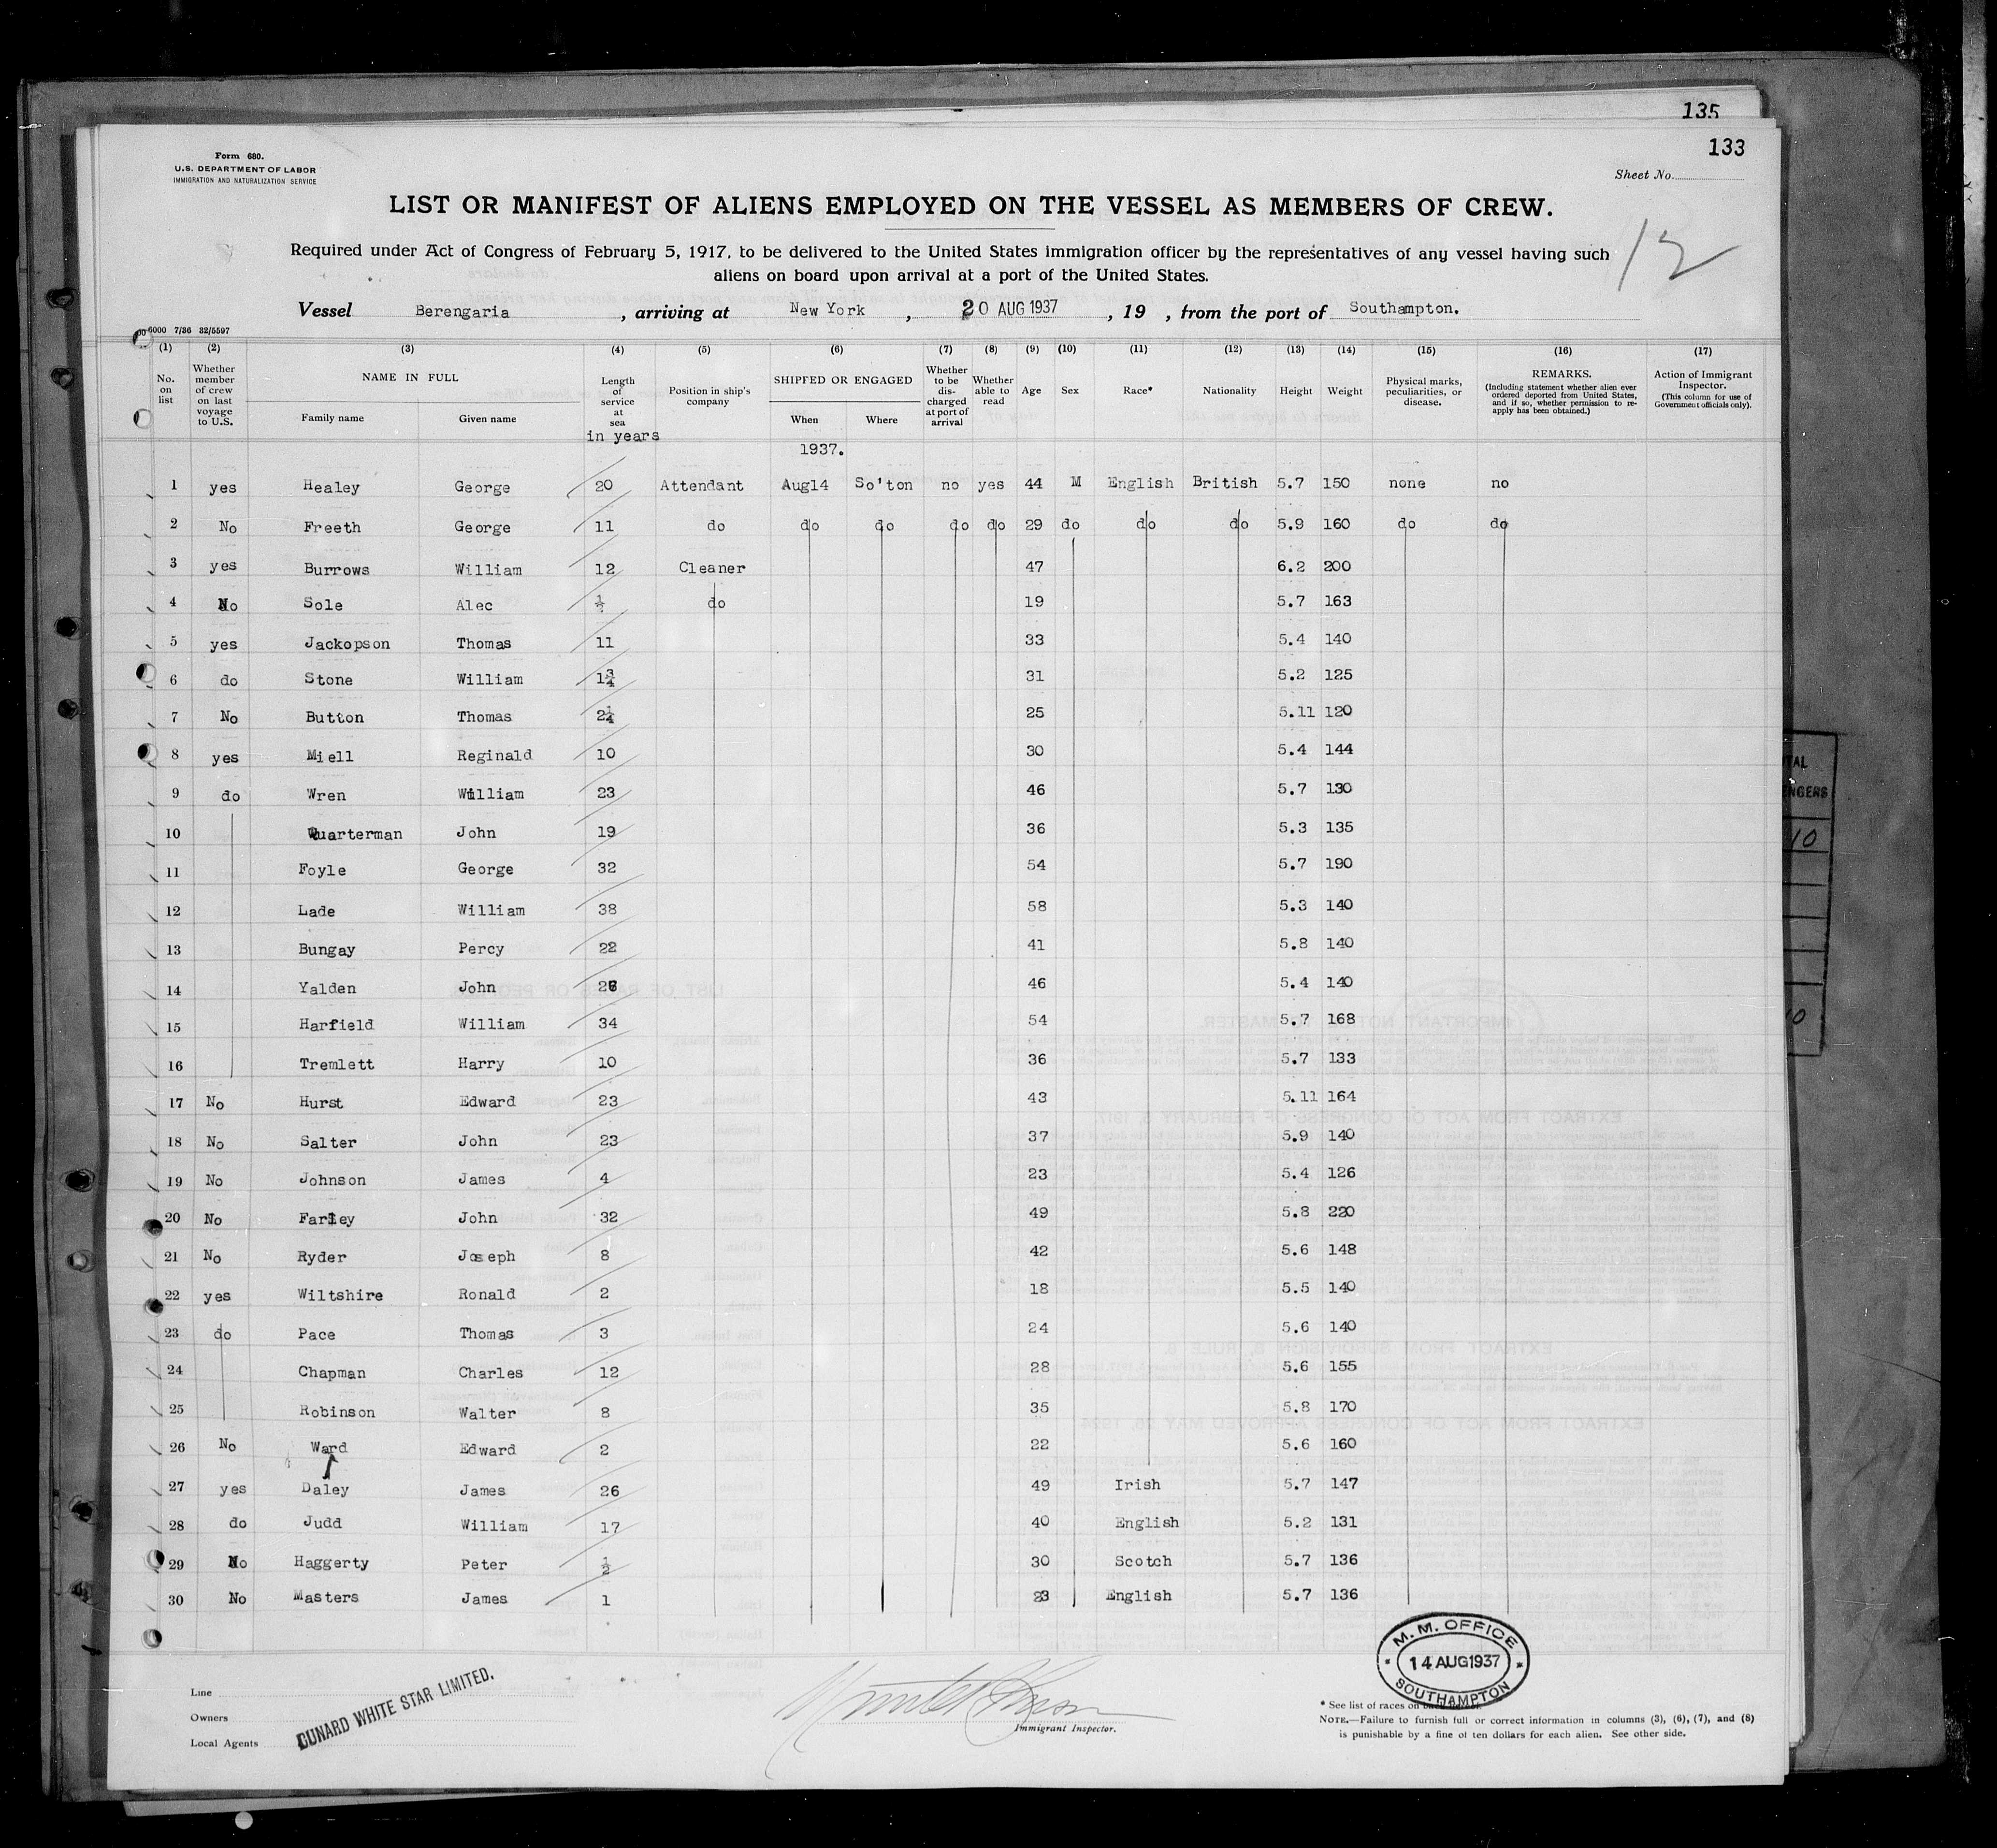 135
133
Form 680.
U.S. DEPARTMENT OF LABOR
IMMIGRATION AND NATURALIZATION SERVICE
Sheet No.
LIST OR MANIFEST OF ALIENS EMPLOYED ON THE VESSEL AS MEMBERS OF CREW.
12
Required under Act of Congress of February 5, 1917, to be delivered to the United States immigration officer by the representatives of any vessel having such
aliens on board upon arrival at a port of the United States.
Vessel Berengaria , arriving at New York , 20 AUG 1937 , 19 , from the port of Southampton.
6000 7/36 32/5597
(1) (2) (3) (4) (5) (6) (7) (8) (9) (10) (11) (12) (13) (14) (15) (16) (17)
No. on list
Whether member of crew on last voyage to U.S.
NAME IN FULL
Family name Given name
Length of service at sea
in years
Position in ship's company
SHIPPED OR ENGAGED
When Where
Whether to be discharged at port of arrival
Whether able to read
Age Sex Race* Nationality Height Weight
Physical marks, peculiarities, or disease.
REMARKS.
(Including statement whether alien ever ordered deported from United States, and if so, whether permission to reapply has been obtained.)
Action of Immigrant Inspector.
(This column for use of Government officials only).
1937.
1 yes Healey George 20 Attendant Aug14 So'ton no yes 44 M English British 5.7 150 none no
2 No Freeth George 11 do do do do do 29 do do do 5.9 160 do do
3 yes Burrows William 12 Cleaner 47 6.2 200
4 No Sole Alec ½ do 19 5.7 163
5 yes Jackopson Thomas 11 33 5.4 140
6 do Stone William 1¾ 31 5.2 125
7 No Button Thomas 2¼ 25 5.11 120
8 yes Miell Reginald 10 30 5.4 144
9 do Wren William 23 46 5.7 130
10 Quarterman John 19 36 5.3 135
11 Foyle George 32 54 5.7 190
12 Lade William 38 58 5.3 140
13 Bungay Percy 22 41 5.8 140
14 Yalden John 46 5.4 140
15 Harfield William 34 54 5.7 168
16 Tremlett Harry 10 36 5.7 133
17 No Hurst Edward 23 43 5.11 164
18 No Salter John 23 37 5.9 140
19 No Johnson James 4 23 5.4 126
20 No Farley John 32 49 5.8 220
21 No Ryder Joseph 8 42 5.6 148
22 yes Wiltshire Ronald 2 18 5.5 140
23 do Pace Thomas 3 24 5.6 140
24 Chapman Charles 12 28 5.6 155
25 Robinson Walter 8 35 5.8 170
26 No Ward Edward 2 22 5.6 160
27 yes Daley James 26 49 Irish 5.7 147
28 do Judd William 17 40 English 5.2 131
29 No Haggerty Peter ½ 30 Scotch 5.7 136
30 No Masters James 1 23 English 5.7 136
M. M. OFFICE
14 AUG1937
SOUTHAMPTON
Line
Owners
Local Agents
CUNARD WHITE STAR LIMITED.
Immigrant Inspector.
* See list of races on
NOTE.—Failure to furnish full or correct information in columns (3), (6), (7), and (8)
is punishable by a fine of ten dollars for each alien. See other side.